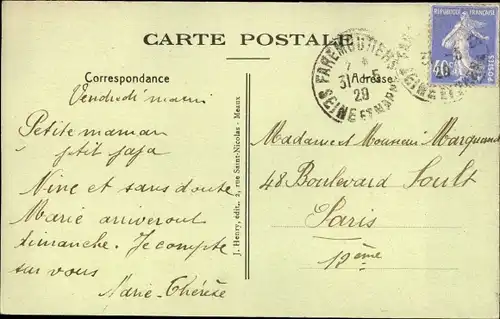 CARTE POSTALE
Correspondance
Vendredi matin
Petite maman
petit papa
Nine et sans doute
Marie arriveront
dimanche. Je compte
sur vous
Marie-Thérèse
J. Henry, édit., 2, rue Saint-Nicolas - Meaux
Adresse
FAREMOUTIERS
31 - 5
29
SEINE ET MARNE
RÉPUBLIQUE FRANÇAISE
40c
POSTES
Madame et Monsieur Marquand
48 Boulevard Soult
Paris
12ème